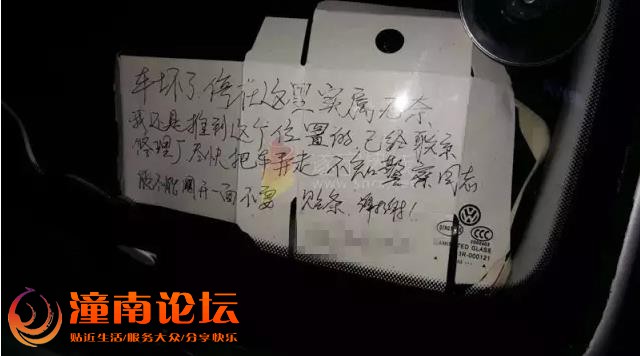 车坏了,停在这里实属无奈
我还是推到这个位置的,已经联系
修理厂尽快把车弄走,不知警察同志
能不能网开一面不要 贴条,谢谢!
CCC
LAMINATED GLASS
000121
潼南论坛
贴近生活/服务大众/分享快乐